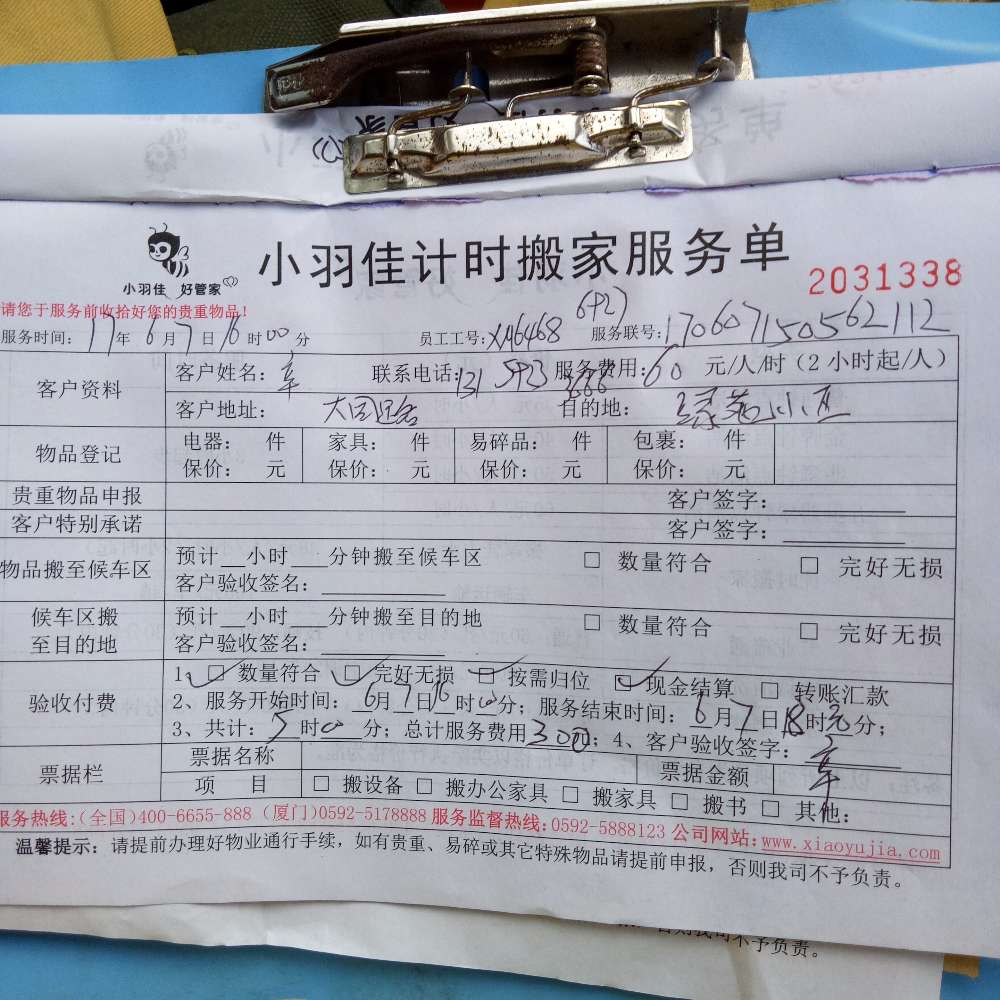 小羽佳 好管家
小羽佳计时搬家服务单
2031338
请您于服务前收拾好您的贵重物品!
服务时间: 17年 6月 7日 16时00分 员工工号: XM6468 6427 服务联号: 170607150562112
客户资料 客户姓名: 辛 联系电话: 131 服务费用: 60 元/人/时(2小时起/人)
客户地址: 目的地: 绿苑小区
物品登记 电器: 件 家具: 件 易碎品: 件 包裹: 件
保价: 元 保价: 元 保价: 元 保价: 元
贵重物品申报 客户签字:
客户特别承诺 客户签字:
物品搬至候车区 预计__小时___分钟搬至候车区 □ 数量符合 □ 完好无损
客户验收签名:
候车区搬至目的地 预计__小时___分钟搬至目的地 □ 数量符合 □ 完好无损
客户验收签名:
验收付费 1、☑ 数量符合 ☑ 完好无损 ☑ 按需归位 ☑ 现金结算 □ 转账汇款
2、服务开始时间: 6月7日16时00分; 服务结束时间: 6月7日18时30分;
3、共计: 5时00分; 总计服务费用300; 4、客户验收签字: 辛
票据栏 票据名称 票据金额
项 目 □ 搬设备 □ 搬办公家具 □ 搬家具 □ 搬书 □ 其他:
服务热线:(全国)400-6655-888 (厦门)0592-5178888 服务监督热线:0592-5888123 公司网站:www.xiaoyujia.com
温馨提示: 请提前办理好物业通行手续，如有贵重、易碎或其它特殊物品请提前申报，否则我司不予负责。
否则我司不予负责。